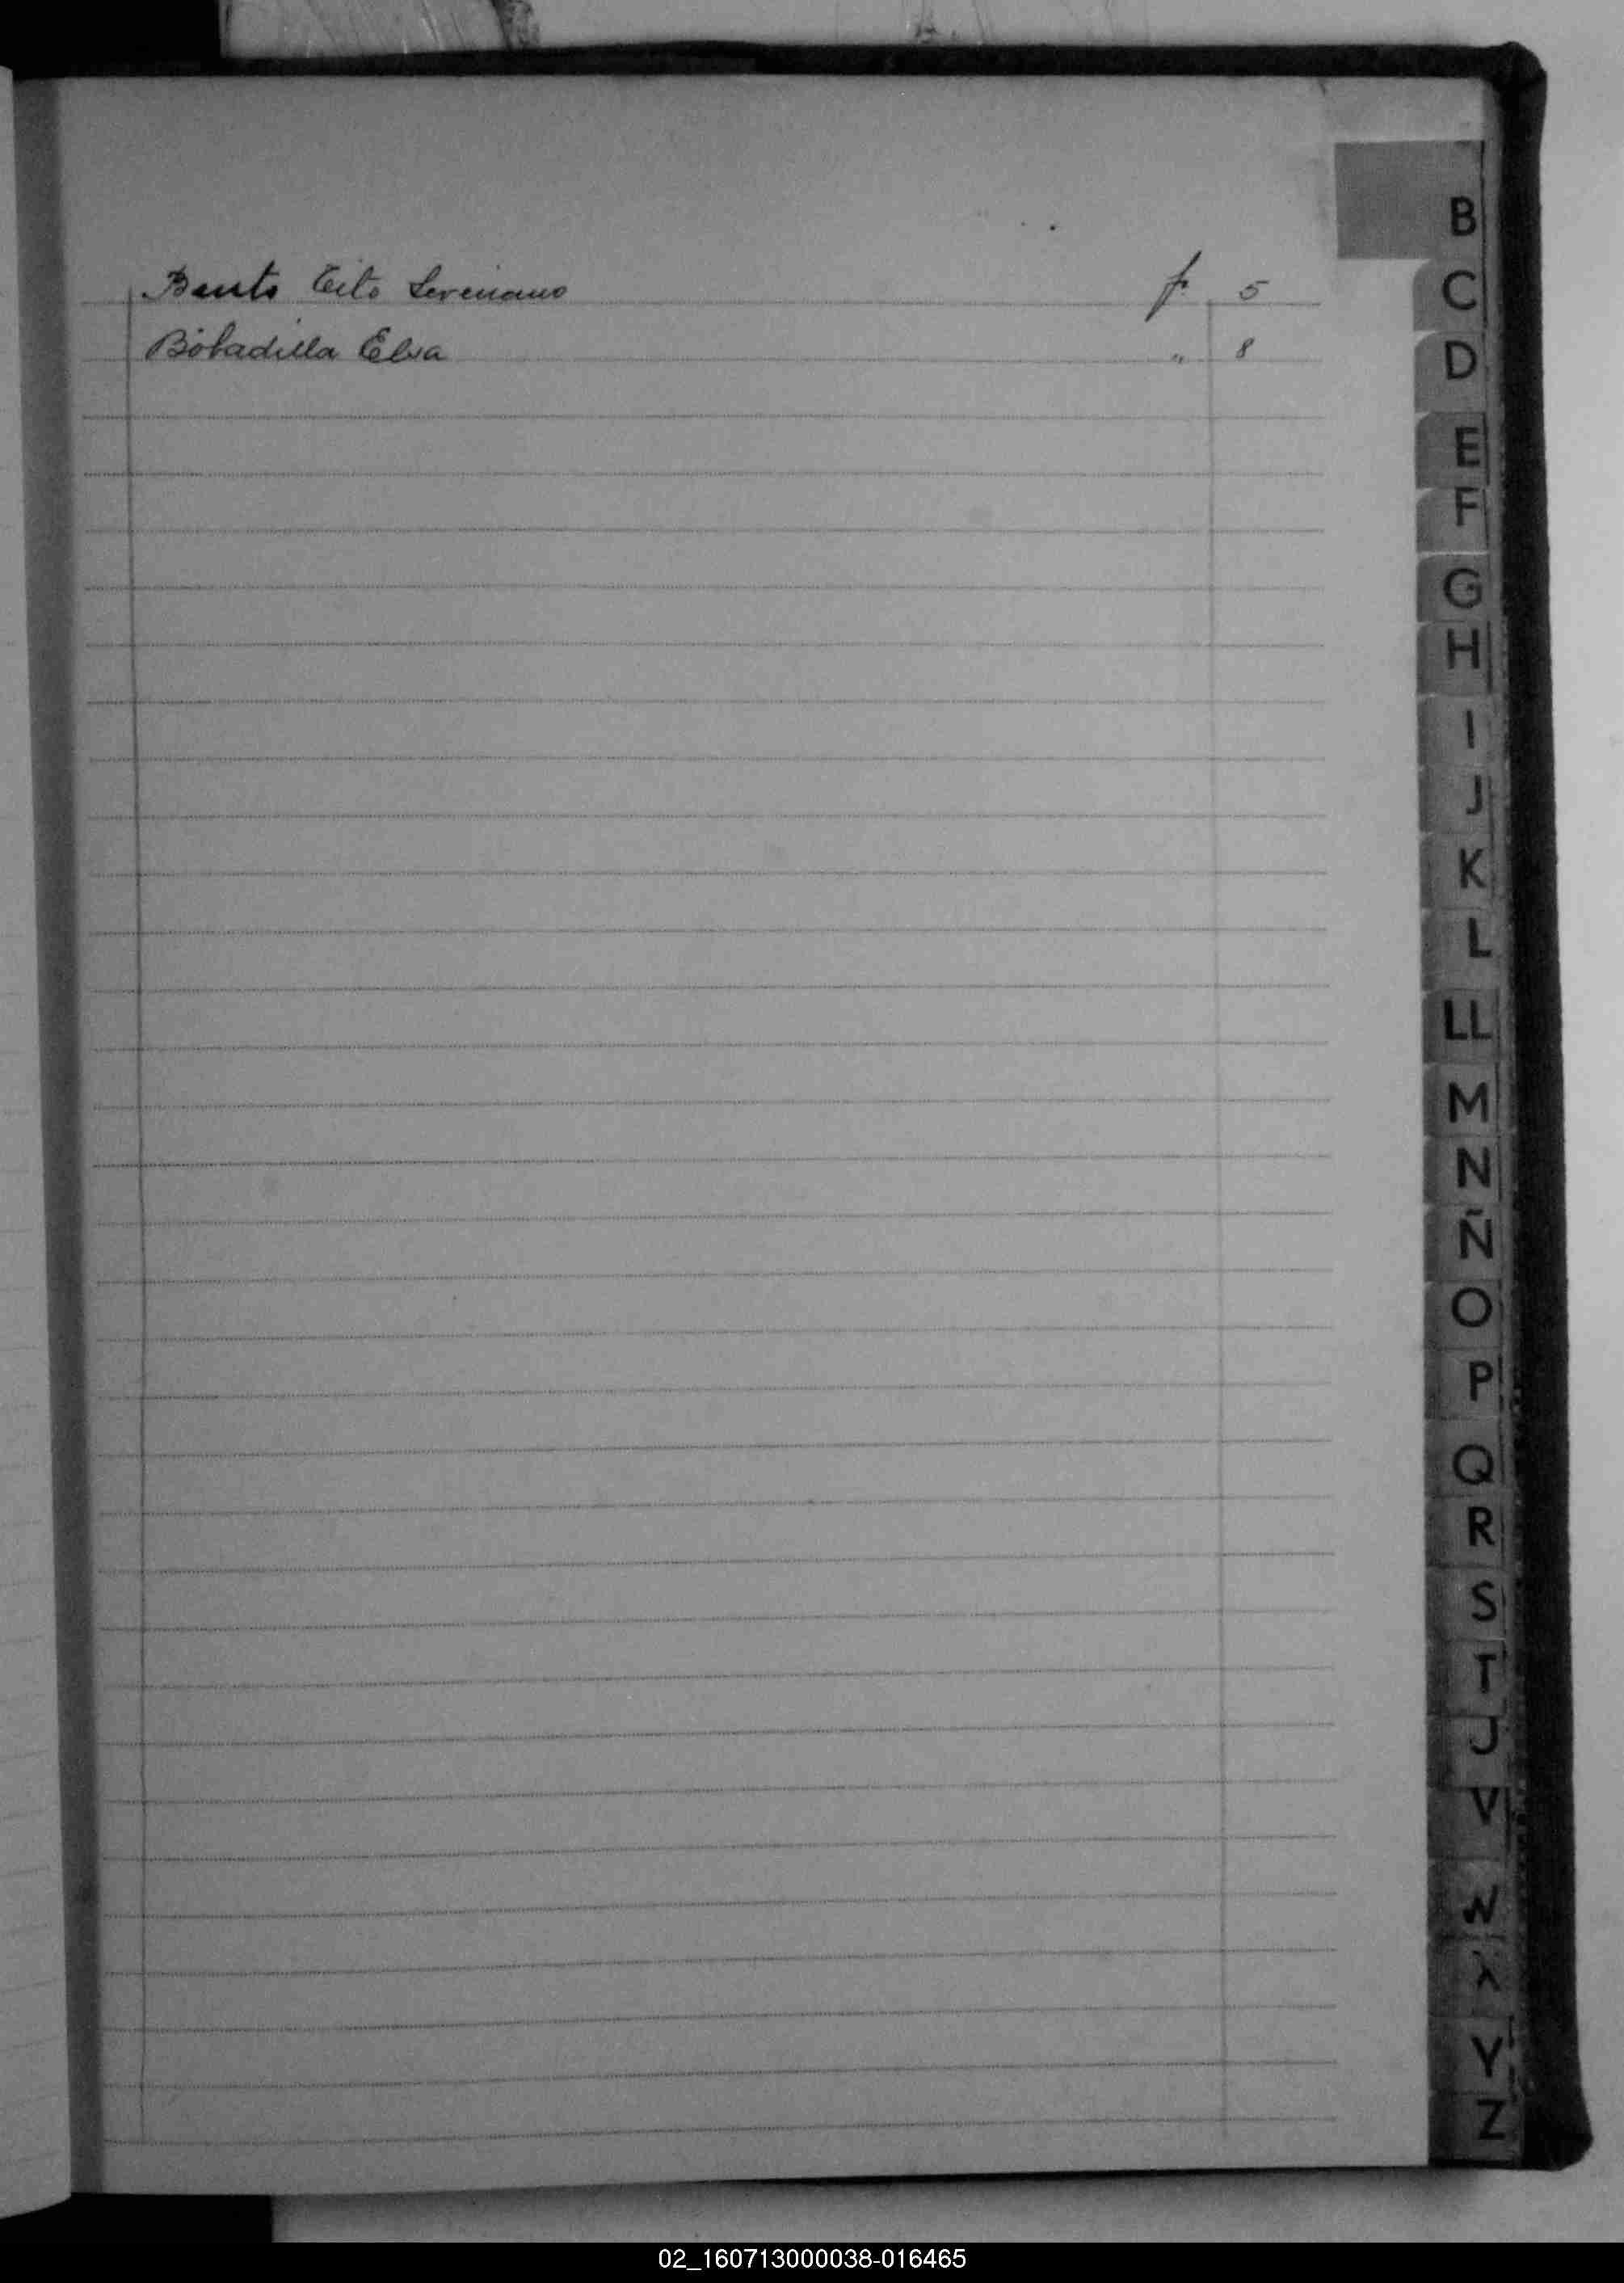 Bento Tito Severiano f. 5
Bobadilla Elsa " 8
B
C
D
E
F
G
H
I
J
K
L
LL
M
N
Ñ
O
P
Q
R
S
T
U
V
W
X
Y
Z
02_160713000038-016465